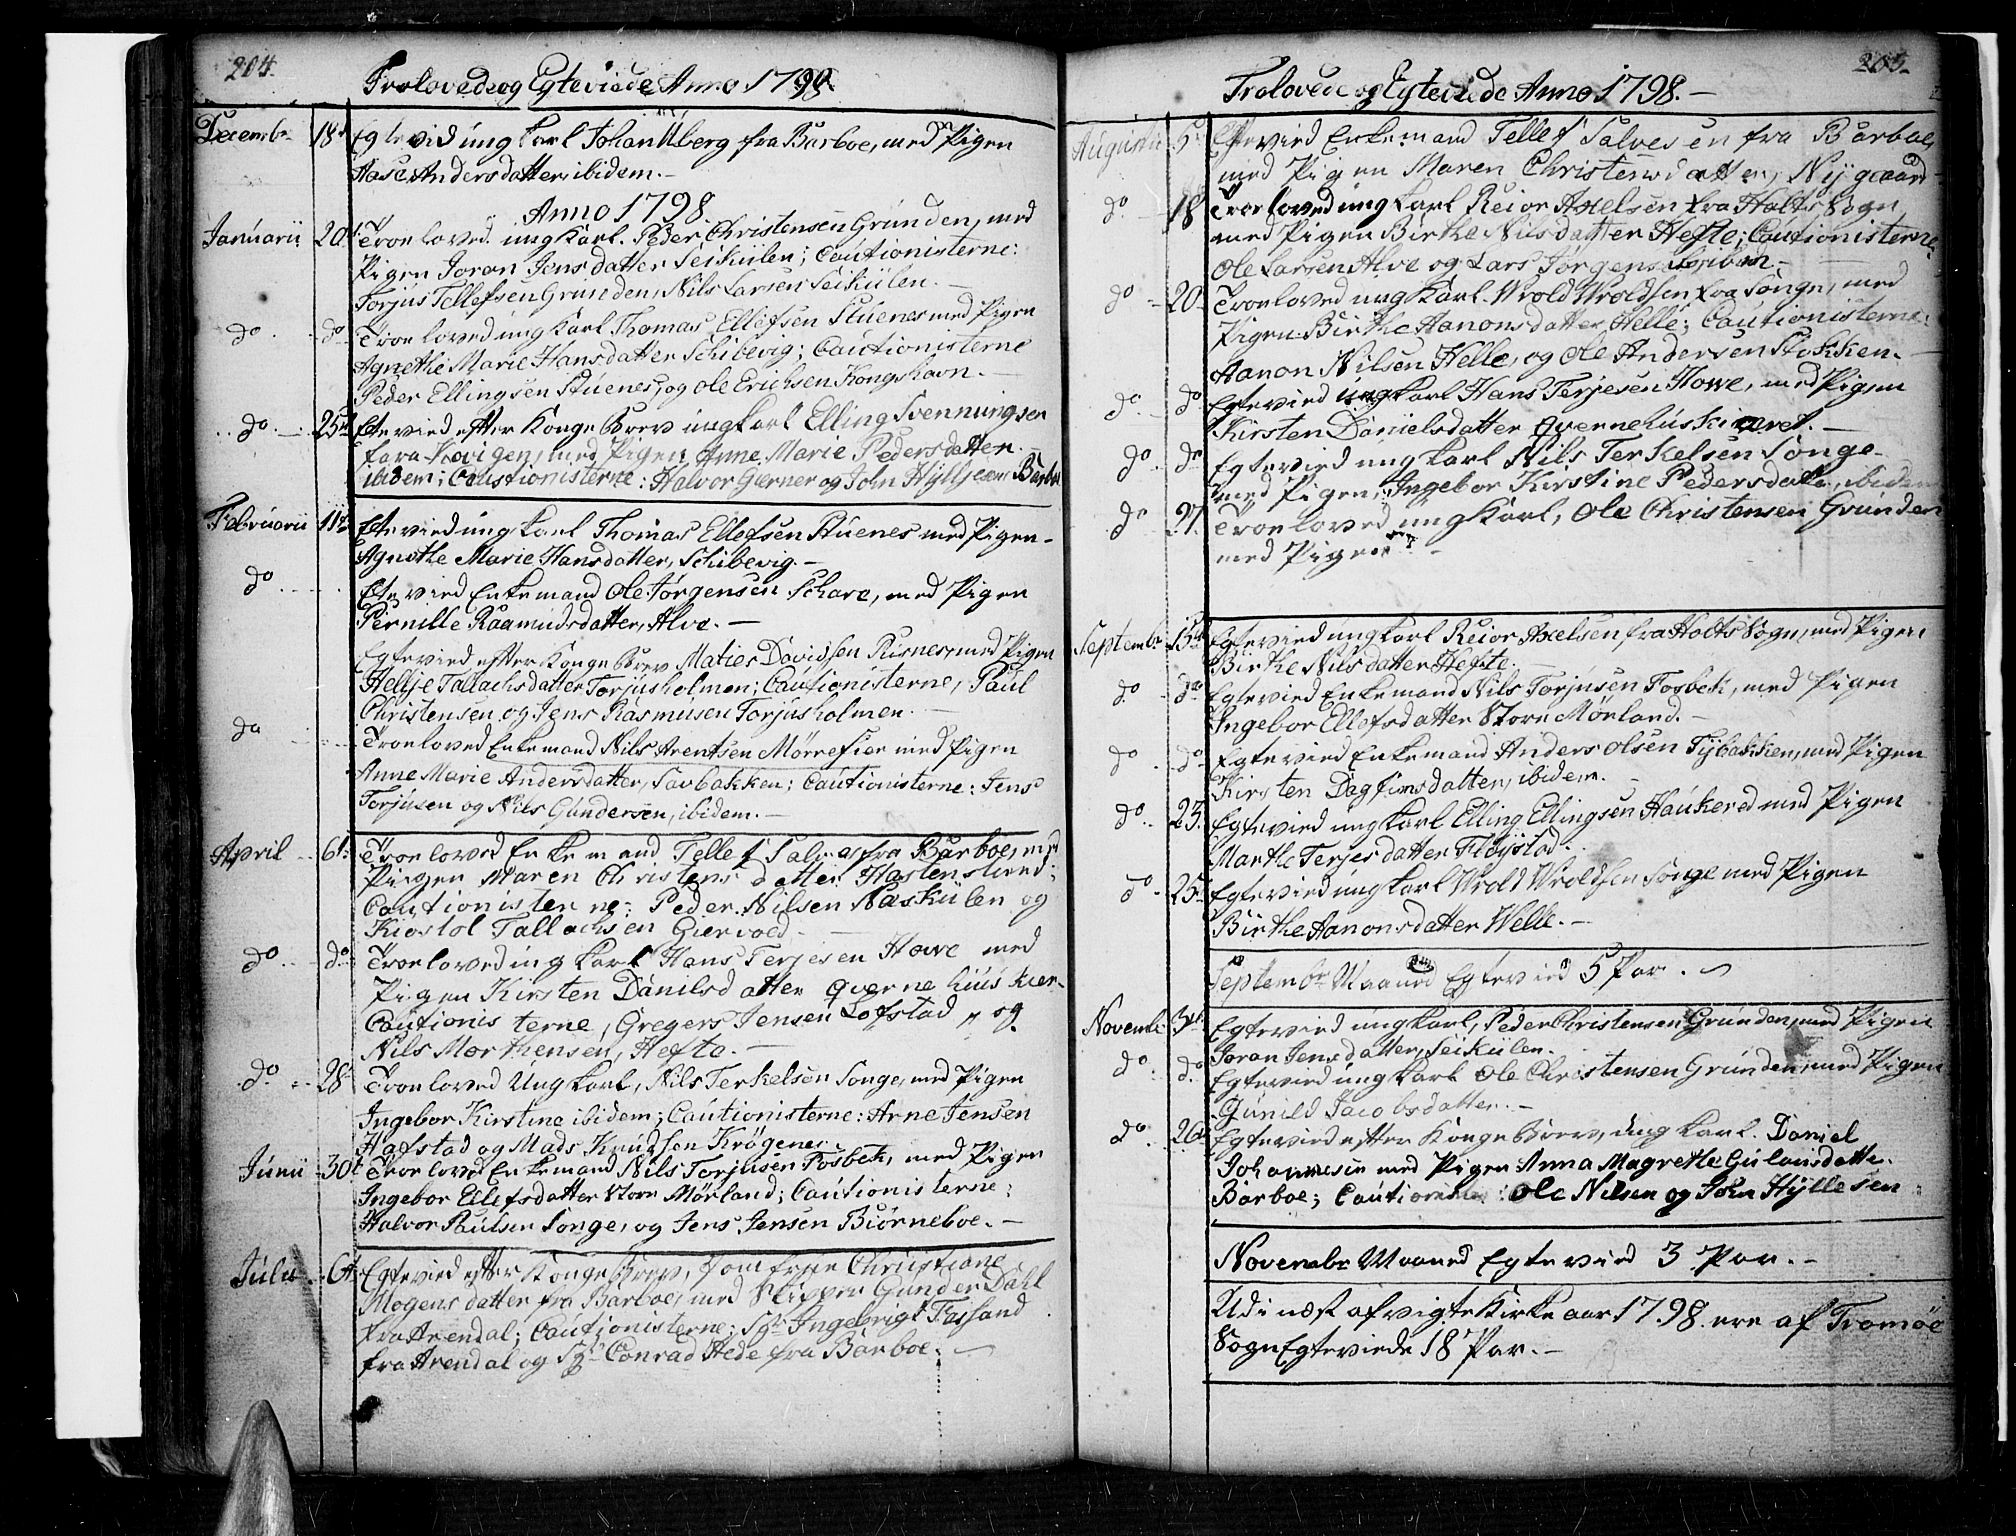 204.
Trolovede og Egteviede Anno 1798.
Decembr 18d Egtevid ungkarl Johan Uberg fra Barboe, med Pigen
Aase Andersdatter, ibidem.-
Anno 1798
Januarii 20d Troeloved ungkarl. Peder Christensen Grunden, med
Pigen Joran Jensdatter Seikülen; Cautionisterne:
Torjus Tellefsen Grunden, Nils Larsen Seikülen.-
do do Troeloved ungkarl Thomas Ellefsen Stuenes med Pigen
Agnethe Marie Hansdatter Schibevig; Cautionisterne
Peder Ellingsen Stuenes, og Ole Erichsen Kongshavn.-
do 25d Etevied efter Konge Brev ungkarl Elling Svenningsen
fara Kovigen, med Pigen Anne Marie Pedersdatter
ibidem; Cautionisterne: Halvor Gierner og John Hylljesen Barbo
Februarii 11d Etevied ungkarl Thomas Ellefsen Stuenes med Pigen-
Agnethe Marie Hansdatter, Schibevig.-
do Etevied Enkemand Ole Jörgensen Schare, med Pigen
Pernille Raamundsdatter, Alve.-
Egtevied efter Konge Brev Maties Davidsen Risnes, med Pigen
Hellje Tallachsdatter Torjusholmen; Cautionisterne, Paul
Christensen og Jens Rasmusen Torjusholmen.-
do Troeloved Enkemand Nils Arentsen Mørrefier med Pigen
Anne Marie Andersdatter, Savbakken; Cautionisterne: Jens
Torjusen og Nils Gundersen, ibidem.-
April 6d: Troeloved Enkemand Tellef Salves fra Barboe, med
Pigen Maren Christensdatter Hastensund;
Cautionisterne: Peder Nilsen Naskülen og
Kiostol Tallachsen Giervold.-
do do Troeloved ungkarl Hans Terjesen Howe med
Pigen Kirsten Danilsdatter Qvernehuuskier-
Cautionisterne, Gregers Jensen Lofstad, og
Nils Morthensen, Hefte.-
do 28 Troeloved Ungkarl, Nils Terkelsen Songe, med Pigen
Ingebor Kirstine ibidem; Cautionisterne: Arne Jensen
Hafstad og Mads Knudsen Krögenes
Junii 30d Troeloved Enkemand Nils Torjusen Fosbek, med Pigen
Ingebor Ellefsdatter Store Mørland; Cautionisterne;
Halvor Paulsen Songe, og Jens Jensen Biørneboe.-
Julii 6d Egtevied efter Konge Brev, Jomfrue Christiane
Mogensdatter fra Barboe, med Skipper Gunder Dahl
fra Arendal; Cautionisterne; Sgr Ingebrigt Fassand
fra Arendal og Sgr Conrad Hede fra Barboe.-
205.
Trolovede og Egteviede Anno 1798.-
Augustii 5 Egtevied Enkemand Tellef Salvesen fra Barboe,
med Pigen Maren Christensdatter, Nygaard-
do 18 Troeloved ungkarl Reior Axelsen fra Holts Sogn
med Pigen Birthe Nilsdatter Hefte; Cautionisterne
Ole Larsen Alve og Lars Jørgensen, ibidem-
do 20 Troeloved ungkarl Wrold Wroldsen fra Songe, med
Pigen Birthe Aanonsdatter, Helle; Cautionisterne:
Aanon Nilsen Helle, og Ole Andersen Stokken.-
do do Egtevied ungkarl Hans Terjesen Howe, med Pigen
Kirsten Danielsdatter Qvernehuuskiæret.-
do do Egtevied ungkarl Nils Terkelsen Songe-
med Pigen, Ingebor Kirstine Pedersdatter, ibidem
do 27. Troeloved ungkarl, Ole Christensen Grunden
med Pigen -
Septembr 15d Egtevied ungkarl Reior Axelsen, fra Holts Sogn, med Pigen
Birthe Nilsdatter Hefte.-
do do Egtevied Enkemand Nils Torjusen Fosbek, med Pigen
Ingebor Ellefsdatter Store Mørland.-
do do Egtevied Enkemand Anders Olsen Tybakken, med Pigen
Kirsten Dagfinsdatter, ibidem.-
do 23. Egtevied ungkarl Elling Ellingsen Haukered med Pigen
Marthe Terjesdatter Fløystad.-
do 25 Egtevied ungkarl Wrold Wroldsen Songe med Pigen
Birthe Aanonsdatter Welle.-
Septembr Maaned Egtevied 5 Par.-
Novembr 3d Egtevied ungkarl, Peder Christensen Grunden, med Pigen
Joran Jensdatter, Seikülen.
do do Egtevied ungkarl Ole Christensen Grunden, med Pigen
Gunild Jacobsdatter.-
do 26d Egtevied efter Konge Brev, ungkarl. Daniel
Johannesen med Pigen Anna Magrethe Gulovsdatter
Barboe; Cautionister: Ole Nilsen og John Hyllesen
Novembr Maaned Egtevied 3 Par.-
Udi næst afvigte Kirkeaar 1798. ere af Tromöe
Sogn Egteviede 18 Par.-